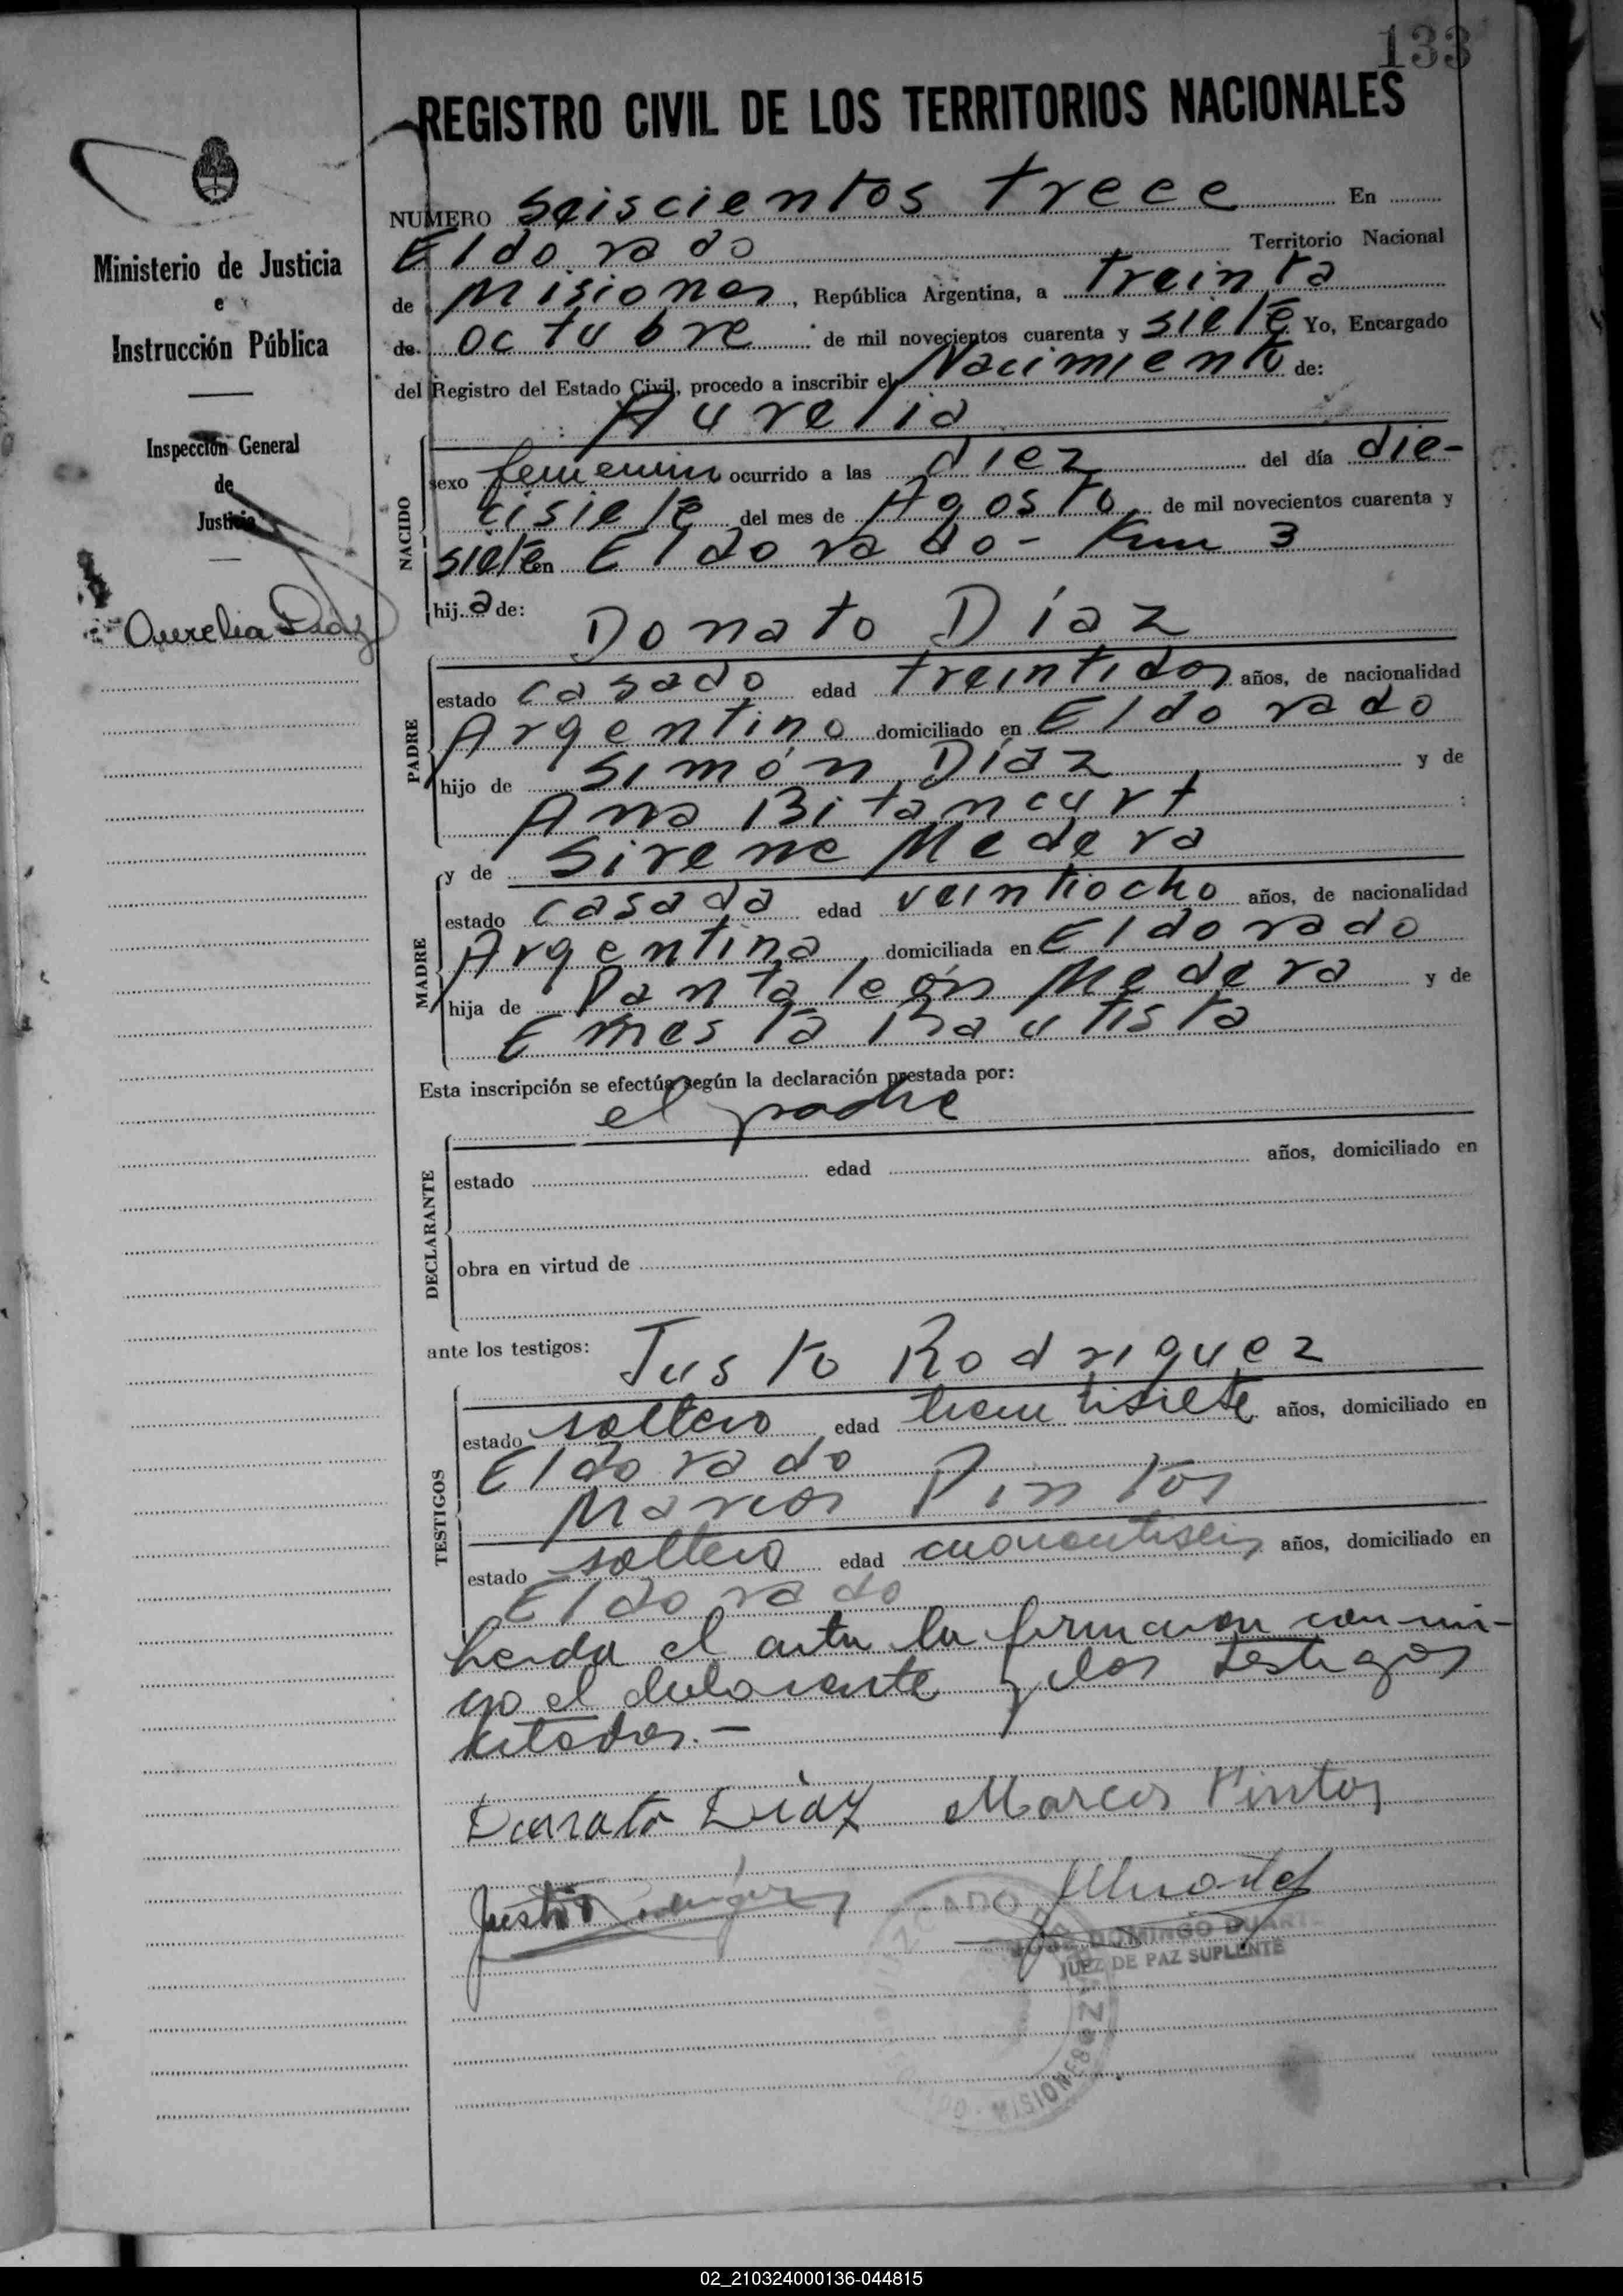 133
REGISTRO CIVIL DE LOS TERRITORIOS NACIONALES
Ministerio de Justicia
e
Instrucción Pública
Inspección General
de
Justicia
Aurelia Diaz
NUMERO Seiscientos trece En
Eldorado Territorio Nacional
de Misiones, República Argentina, a treinta
de octubre de mil novecientos cuarenta y siete Yo, Encargado
del Registro del Estado Civil, procedo a inscribir el Nacimiento de:
Aurelia
NACIDO
sexo femenino ocurrido a las diez del día die-
cisiete del mes de Agosto de mil novecientos cuarenta y
siete en Eldorado - Km 3
hija de:
Donato Díaz
PADRE
estado casado edad treintidos años, de nacionalidad
Argentino domiciliado en Eldorado
hijo de Simón Díaz y de
Ana Bitancurt
y de Sirene Medera
MADRE
estado casada edad veintiocho años, de nacionalidad
Argentina, domiciliada en Eldorado
hija de Pantaleón Medera y de
Ernesta Bautista
Esta inscripción se efectúa según la declaración prestada por:
el padre
DECLARANTE
estado edad años, domiciliado en
obra en virtud de
ante los testigos: Justo Rodriguez
TESTIGOS
estado soltero edad treintisiete años, domiciliado en
Eldorado
Marcos Pintos
estado soltero edad cuarentiseis años, domiciliado en
Eldorado
Leida el acta la firmaron conmi-
go el declarante y los testigos
citados.-
Donato Diaz Marcos Pintos
Justo Rodriguez
JUZGADO DE PAZ
MISIONES
JOSE DOMINGO DUARTE
JUEZ DE PAZ SUPLENTE
02_210324000136-044815